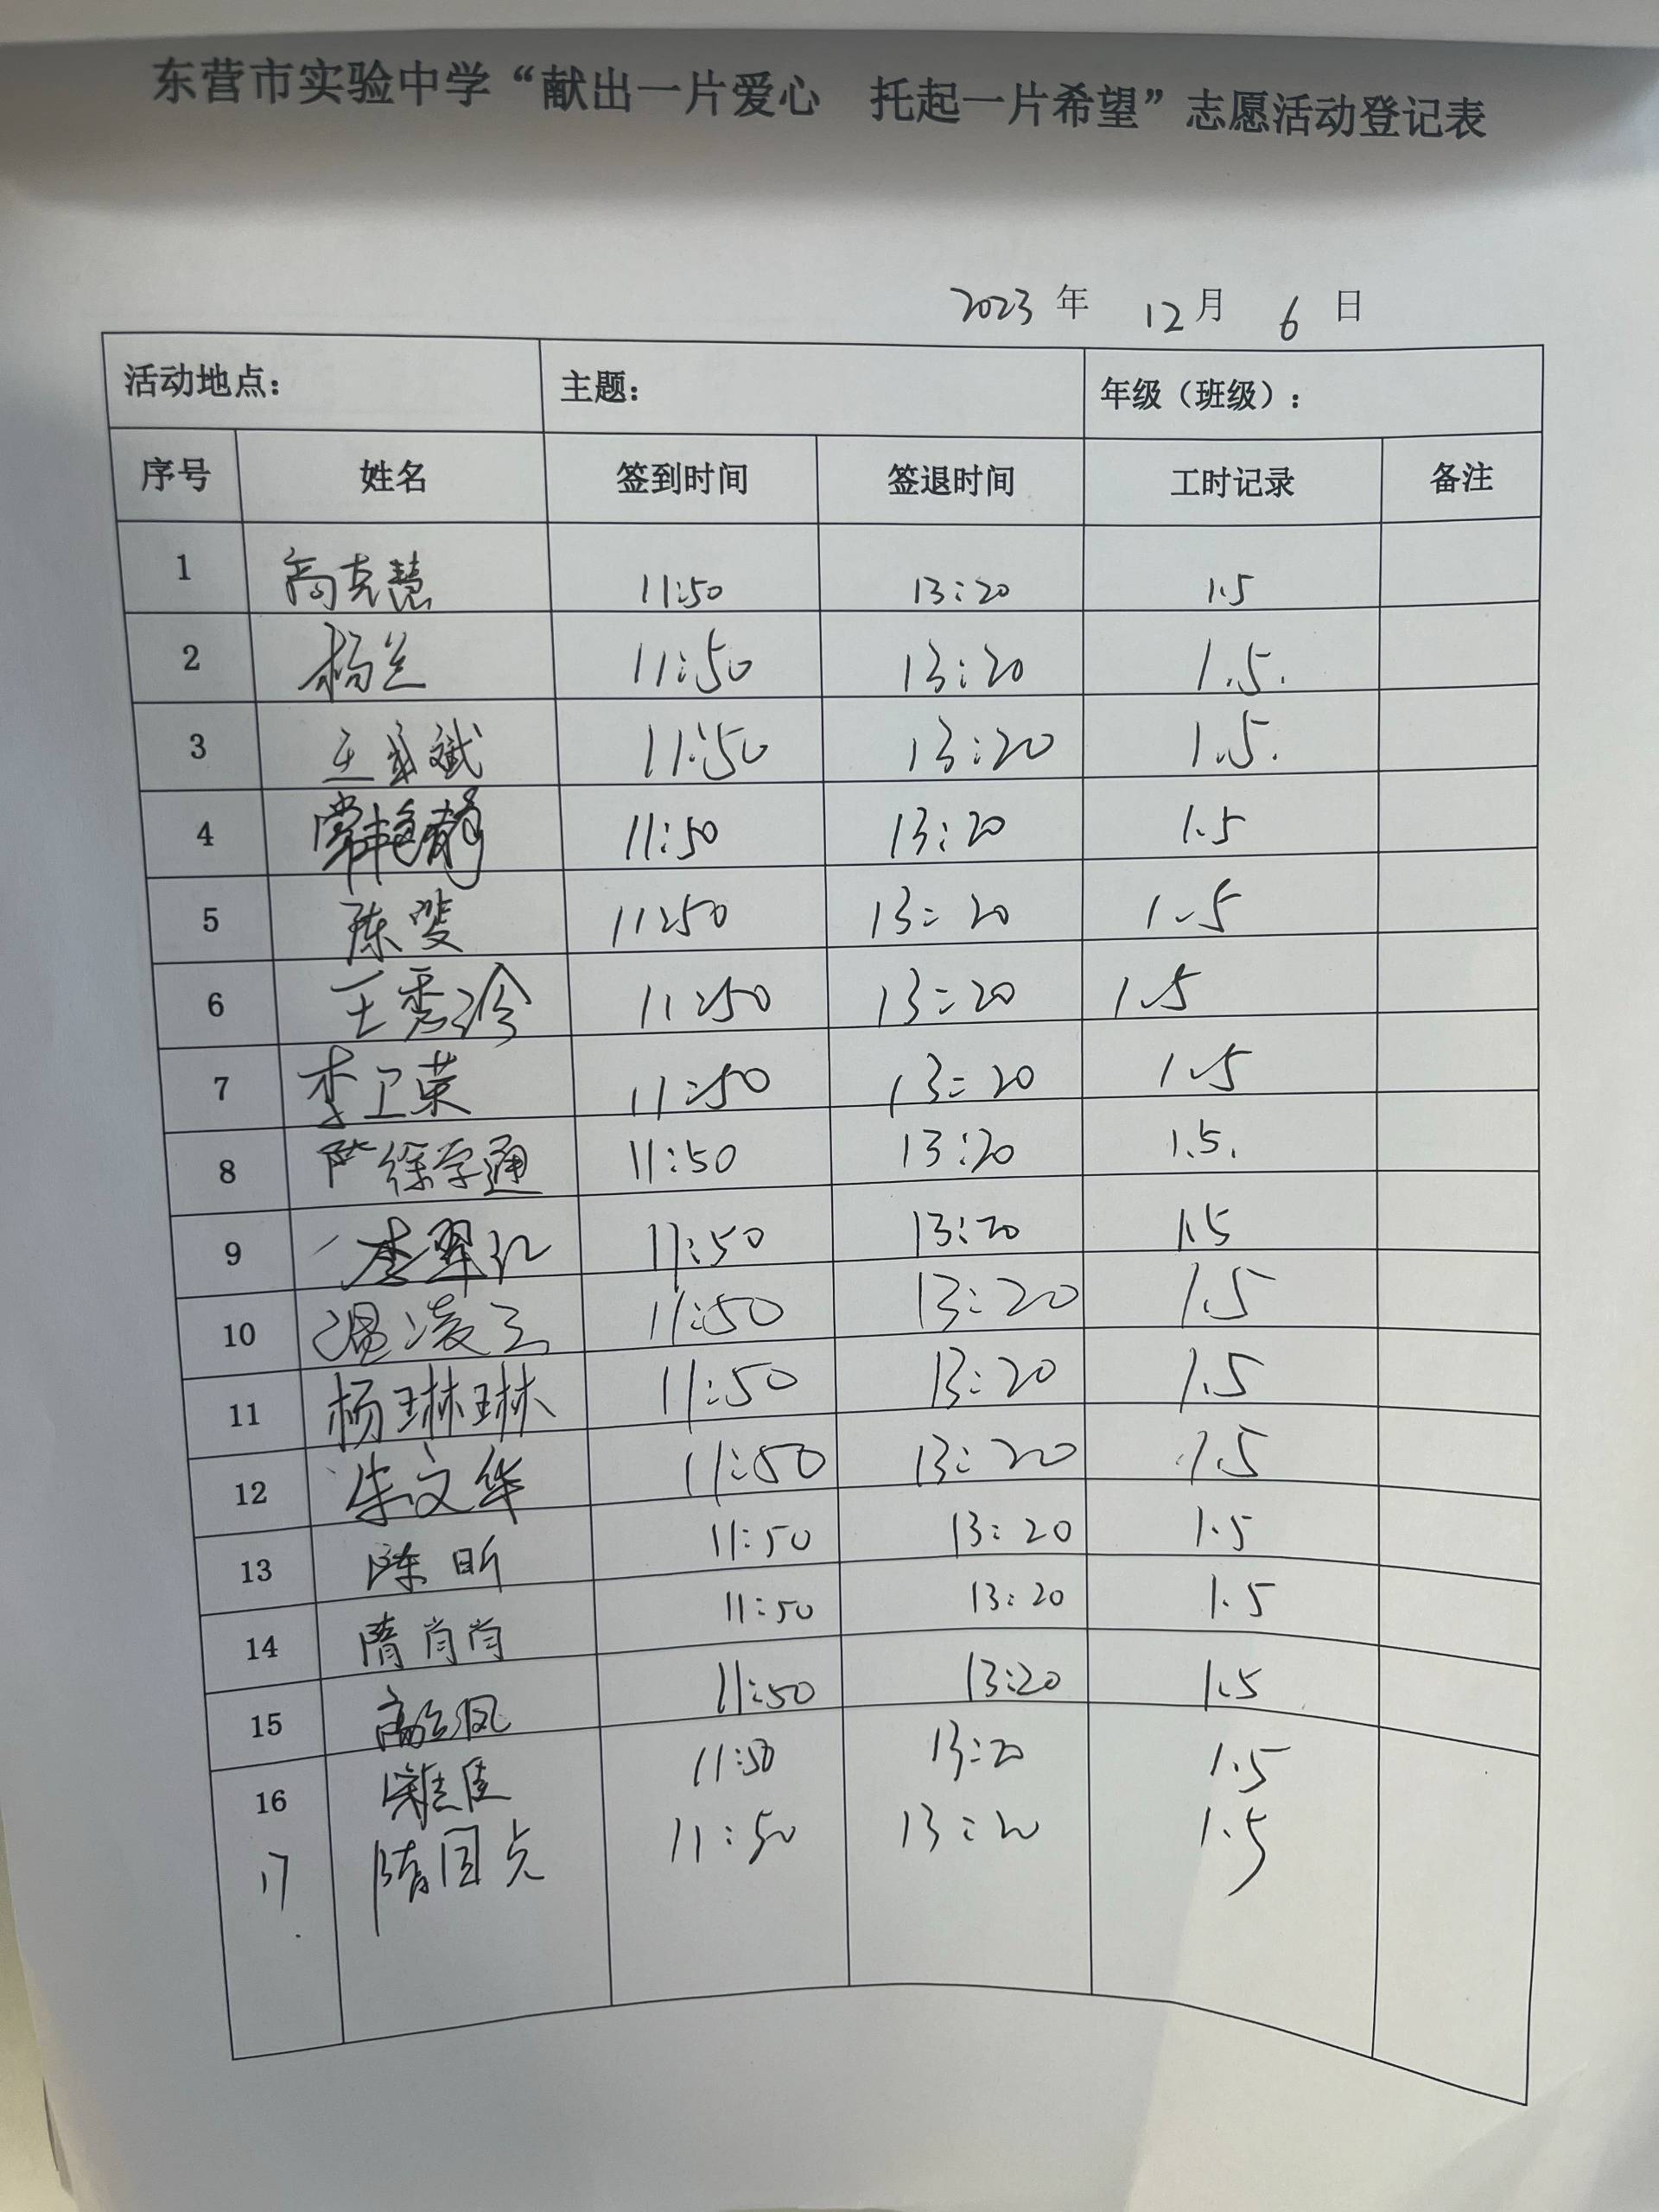 东营市实验中学“献出一片爱心 托起一片希望”志愿活动登记表
2023 年 12 月 6 日
活动地点： 主题： 年级（班级）：
序号 姓名 签到时间 签退时间 工时记录 备注
1 高克慧 11:50 13:20 1.5
2 杨兰 11:50 13:20 1.5.
3 11:50 13:20 1.5.
4 常艳静 11:50 13:20 1.5
5 陈斐 11:50 13:20 1.5
6 王秀玲 11:50 13:20 1.5
7 李卫荣 11:50 13:20 1.5
8 徐学通 11:50 13:20 1.5.
9 李翠红 11:50 13:20 1.5
10 温凌云 11:50 13:20 1.5
11 杨琳琳 11:50 13:20 1.5
12 朱文华 11:50 13:20 1.5
13 陈昕 11:50 13:20 1.5
14 隋肖肖 11:50 13:20 1.5
15 11:50 13:20 1.5
16 11:50 13:20 1.5
17 11:50 13:20 1.5